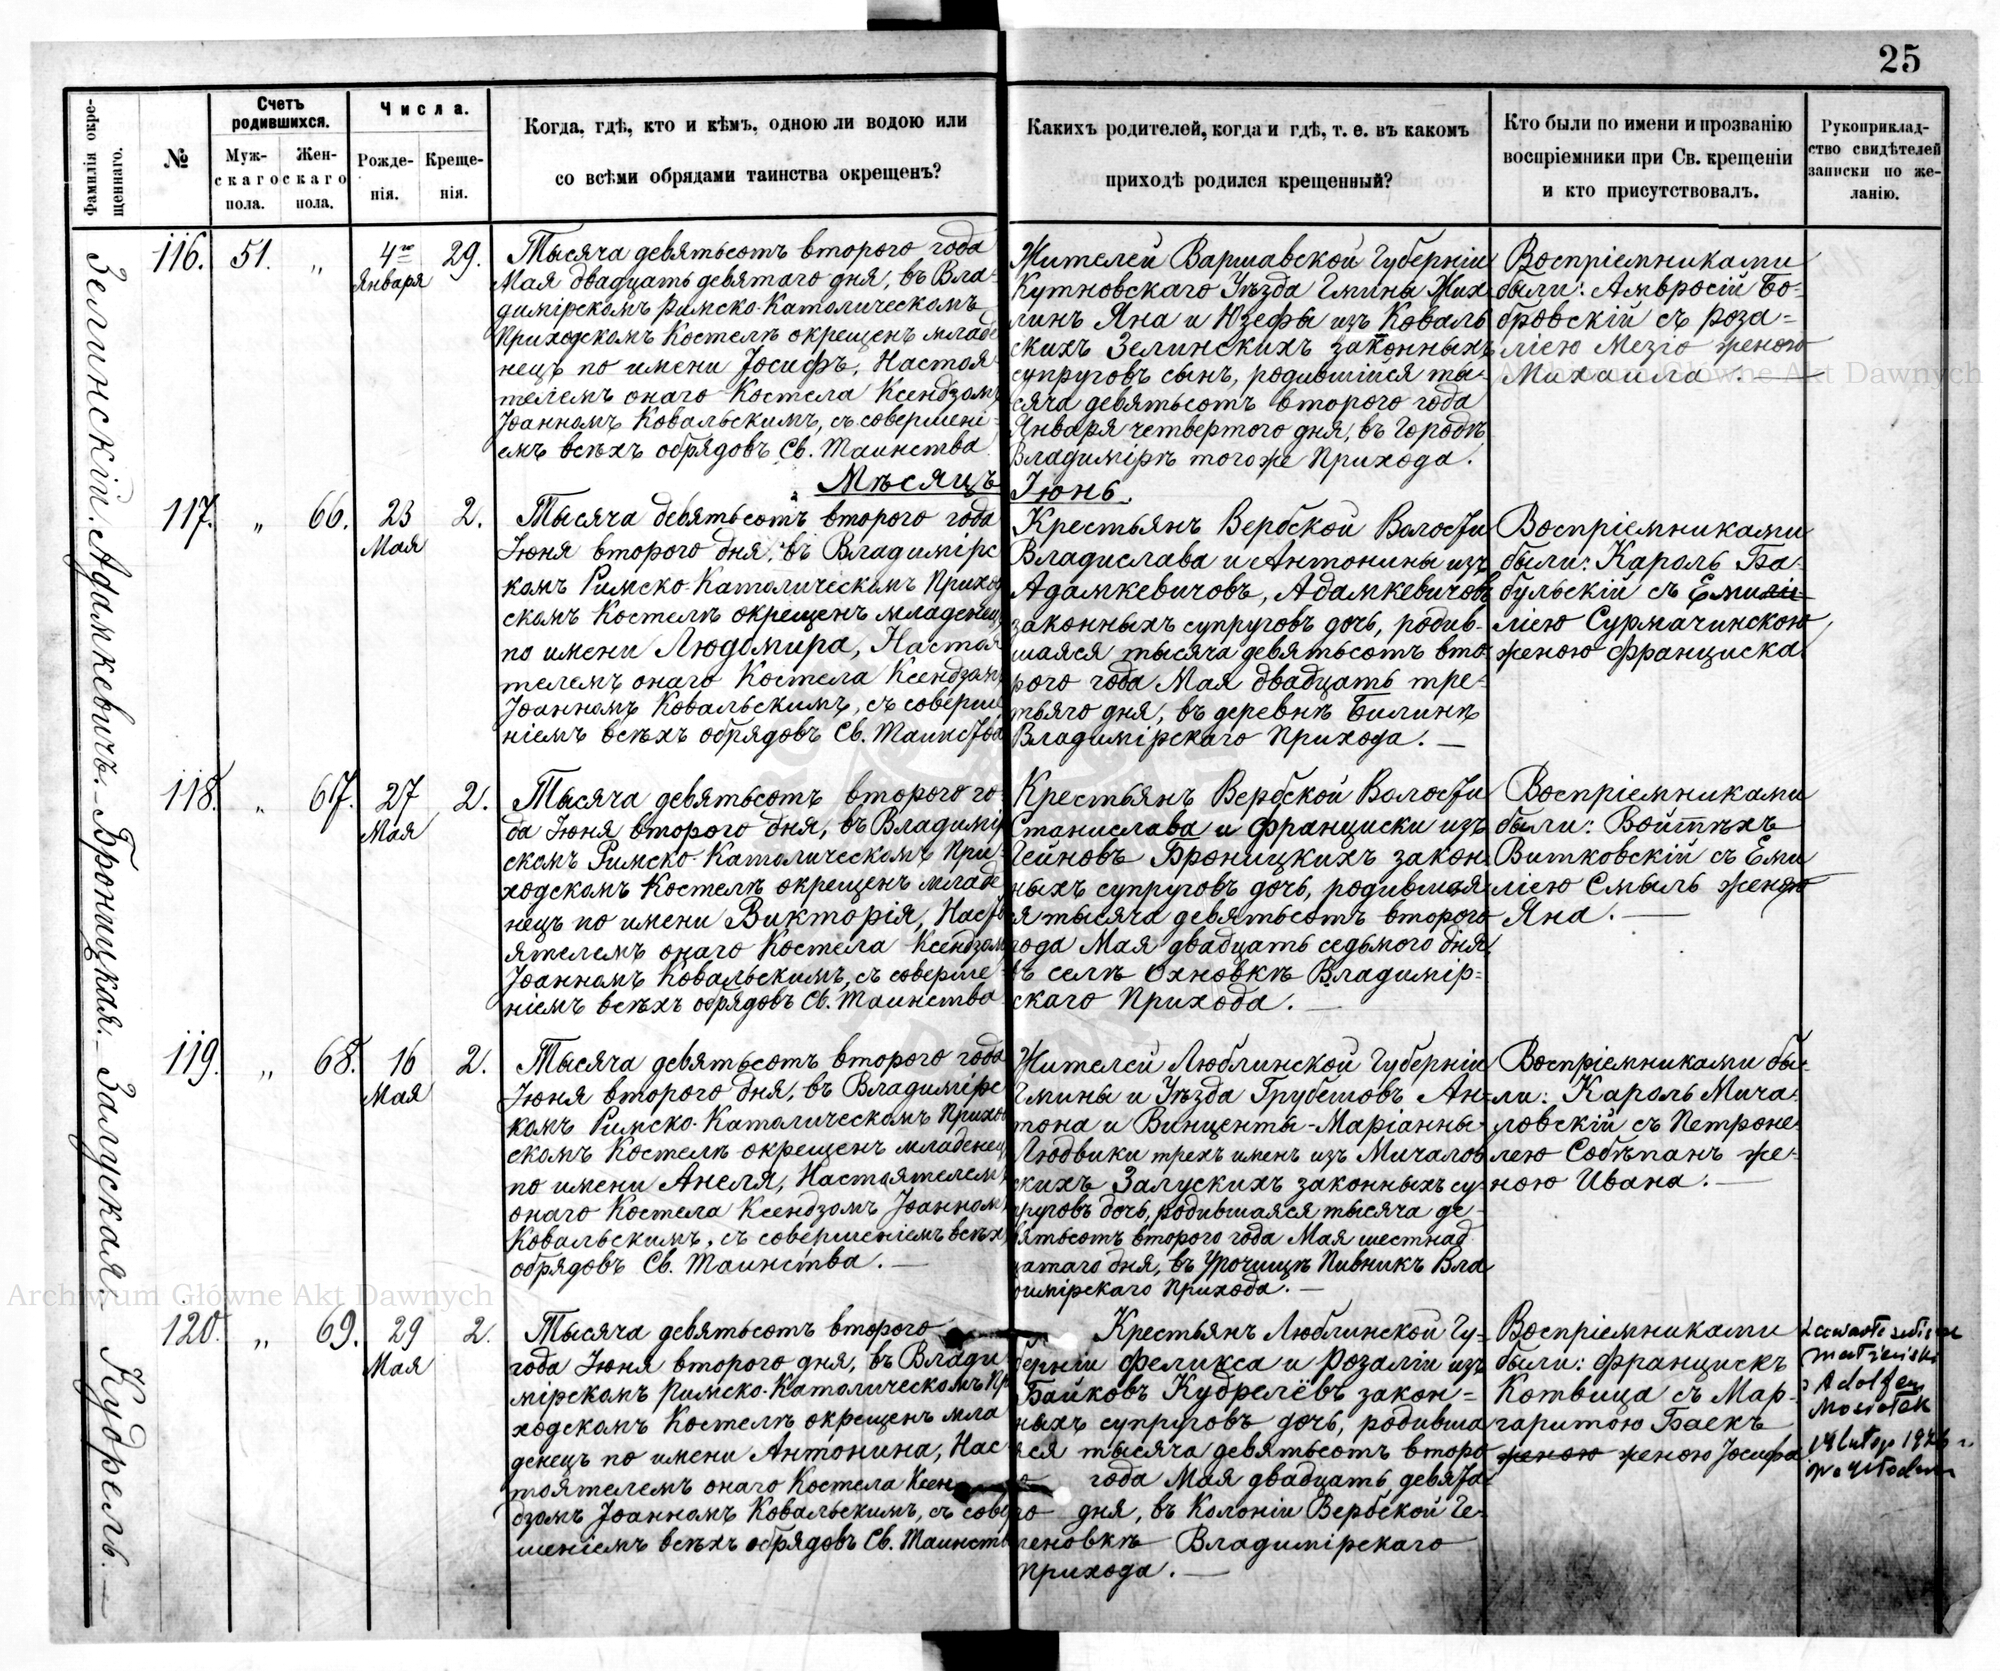 25
Фамилія окре-
щеннаго.
№
Счетъ
родившихся.
Муж-
скаго
пола.
Жен-
скаго
пола.
Числа.
Рожде-
нія.
Креще-
нія.
Когда, гдѣ, кто и кѣмъ, одною ли водою или
со всѣми обрядами таинства окрещенъ?
Какихъ родителей, когда и гдѣ, т. е. въ какомъ
приходѣ родился крещенный?
Кто были по имени и прозванію
воспріемники при Св. крещеніи
и кто присутствовалъ.
Рукоприклад-
ство свидѣтелей
записки по же-
ланію.
Зелинскій. Адамкевичъ. Броницкая. Залуская. Кудрель.
116. 51. „ 4го Января 29.
Тысяча девятьсотъ второго года
Мая двадцать девятаго дня, въ Вла-
димірскомъ Римско-Католическомъ
Приходскомъ Костелѣ окрещенъ младе
нецъ по имени Іосифъ, Настоя
телемъ онаго Костела Ксендзомъ
Іоанномъ Ковальскимъ, съ совершені-
емъ всѣхъ обрядовъ Св. Таинства
Жителей Варшавской Губерніи
Кутновскаго Уѣзда Гмины Жих
линъ Яна и Юзефы изъ Коваль
скихъ Зелинскихъ законныхъ
супруговъ сынъ, родившійся ты
сяча девятьсотъ второго года
Января четвертого дня, въ Городѣ
Владимірѣ того же Прихода.
Воспріемниками
были: Амвросій Бо-
бровскій съ Роза-
ліею Мезіо женою
Михаила.
Мѣсяцъ Іюнь.
117. „ 66. 23 Мая 2.
Тысяча девятьсотъ второго года
Іюня второго дня, въ Владимірс
комъ Римско-Католическомъ Приход
скомъ Костелѣ окрещенъ младенец
по имени Людомира, Настоя
телемъ онаго Костела Ксендзомъ
Іоанномъ Ковальскимъ, съ соверше
ніемъ всѣхъ обрядовъ Св. Таинства
Крестьянъ Вербской Волости
Владислава и Антонины изъ
Адамкевичовъ, Адамкевичовъ
законныхъ супруговъ дочь, родив-
шаяся тысяча девятьсотъ вто
рого года Мая двадцать тре-
тьяго дня, въ деревнѣ Билинѣ
Владимірскаго Прихода.
Воспріемниками
были: Кароль Ба-
бульскій съ Емилі-
ліею Сурмачинскою
женою Франциска.
118. „ 67. 27 Мая 2.
Тысяча девятьсотъ второго го-
да Іюня второго дня, въ Владимір
скомъ Римско-Католическомъ При-
ходскомъ Костелѣ окрещенъ младе
нецъ по имени Викторія, Насто
ятелемъ онаго Костела Ксендзомъ
Іоанномъ Ковальскимъ, съ соверше-
ніемъ всѣхъ обрядовъ Св. Таинства
Крестьянъ Вербской Волости
Станислава и Франциски изъ
Гейновъ Броницкихъ закон
ныхъ супруговъ дочь, родившая
я тысяча девятьсотъ второго
года Мая двадцать седьмого дня
въ селѣ Охновкѣ Владимір-
скаго Прихода.
Воспріемниками
были: Войтѣхъ
Витковскій съ Еми
ліею Смыль женою
Яна.
119. „ 68. 16 Мая 2.
Тысяча девятьсотъ второго года
Іюня второго дня, въ Владимірс
комъ Римско-Католическомъ Приход
скомъ Костелѣ окрещенъ младенец
по имени Анеля, Настоятелем
онаго Костела Ксендзомъ Іоанном
Ковальскимъ, съ совершеніемъ всѣхъ
обрядовъ Св. Таинства.
Жителей Люблинской Губерніи
Гмины и Уѣзда Грубешовъ Ан-
тона и Винценты-Маріанны
Людвики трехъ именъ изъ Михалов
скихъ Залускихъ законныхъ су-
пруговъ дочь, родившаяся тысяча де-
вятьсотъ второго года Мая шестнад
цатаго дня, въ Урочищѣ Пивникъ Вла
димірскаго Прихода.
Воспріемниками бы-
ли: Кароль Миха-
ловскій съ Петроне-
лею Собѣпанъ же-
ною Ивана.
120. „ 69. 29 Мая 2.
Тысяча девятьсотъ второго
года Іюня второго дня, въ Влади
мірскомъ Римско-Католическомъ Пр
ходскомъ Костелѣ окрещенъ мла
денецъ по имени Антонина, Нас
тоятелемъ онаго Костела Ксен
дзомъ Іоанномъ Ковальскимъ, съ совер
шеніемъ всѣхъ обрядовъ Св. Таинств
Крестьянъ Люблинской Гу-
берніи Феликса и Розаліи изъ
Байковъ Кудрелёвъ закон-
ныхъ супруговъ дочь, родивша
яся тысяча девятьсотъ второ
го года Мая двадцать девята
го дня, въ Колоніи Вербской Ге-
леновкѣ Владимірскаго
Прихода.
Воспріемниками
были: Францискъ
Котвица съ Мар-
гаритою Баекъ
женою женою Іосифа
Zawarła związek
małżeński
z Adolfem
Mosiołek
14 lutego 19
Archiwum Główne Akt Dawnych
Archiwum Główne Akt Dawnych